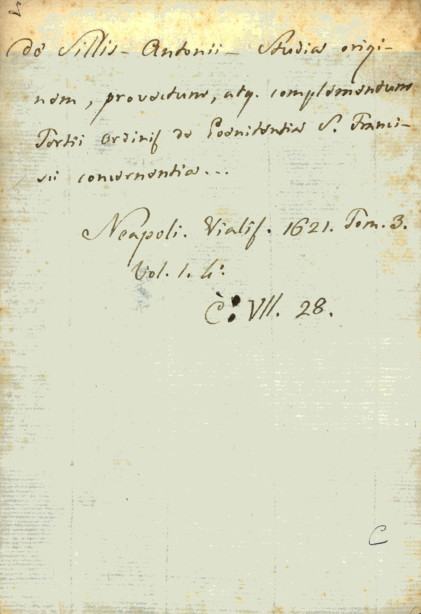 de Sillis - Antonii - Studia origi-
nem, provectum, atq. complementum
Tertii Ordinis de Poenitentia S. Franci-
sci concernentia...
Neapoli. Vialis. 1621. Tom. 3.
Vol. 1. 4º
C: VII. 28.
C